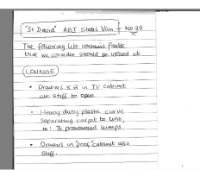 "St David" ABI States Van - No 29
The following list contains faults
that we consider should be looked at.
LOUNGE
• Drawers x 2 in TV cabinet
are stiff to open
• Heavy duty plastic cover
separating carpet to lino,
is! To pronounced bumps.
• Drawers in cabinet also
stiff.